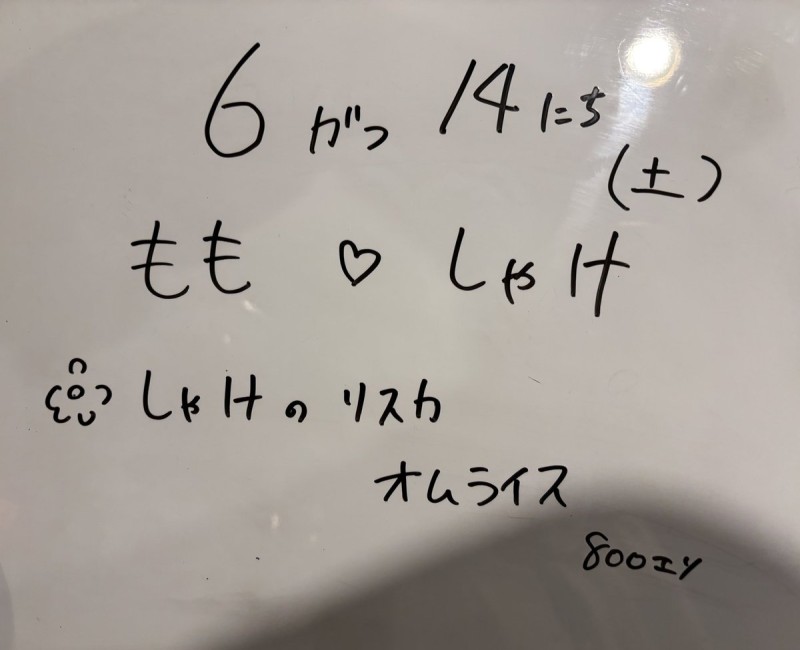 6がつ14にち
(土)
もも ♡ しゃけ
しゃけのリスカ
オムライス
800エン